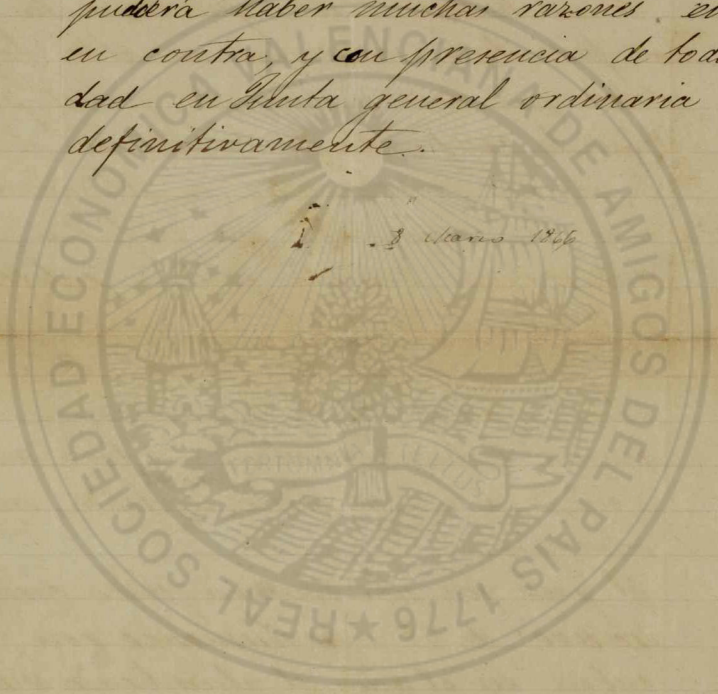 pudiera haber muchas razones en
en contra, y con presencia de toda
dad en Junta general ordinaria
definitivamente.
8 Marzo 1866
REAL SOCIEDAD ECONOMICA VALENCIANA DE AMIGOS DEL PAIS 1776